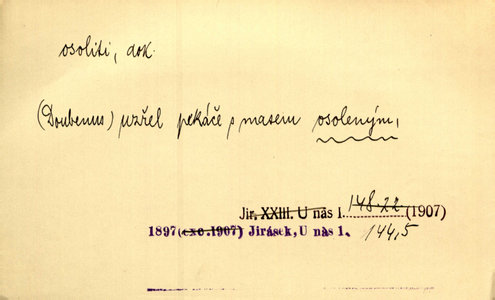 osoliti, dok.
(Doubenus) uzřel pekáče s masem osoleným,
Jir. XXIII. U nás I. 148.22 (1907)
1897 (exc. 1907) Jirásek, U nás 1. 144,5